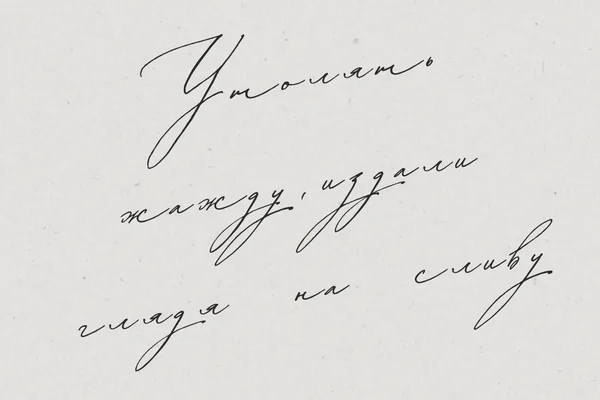 Утолять
жажду, издали
глядя на сливу